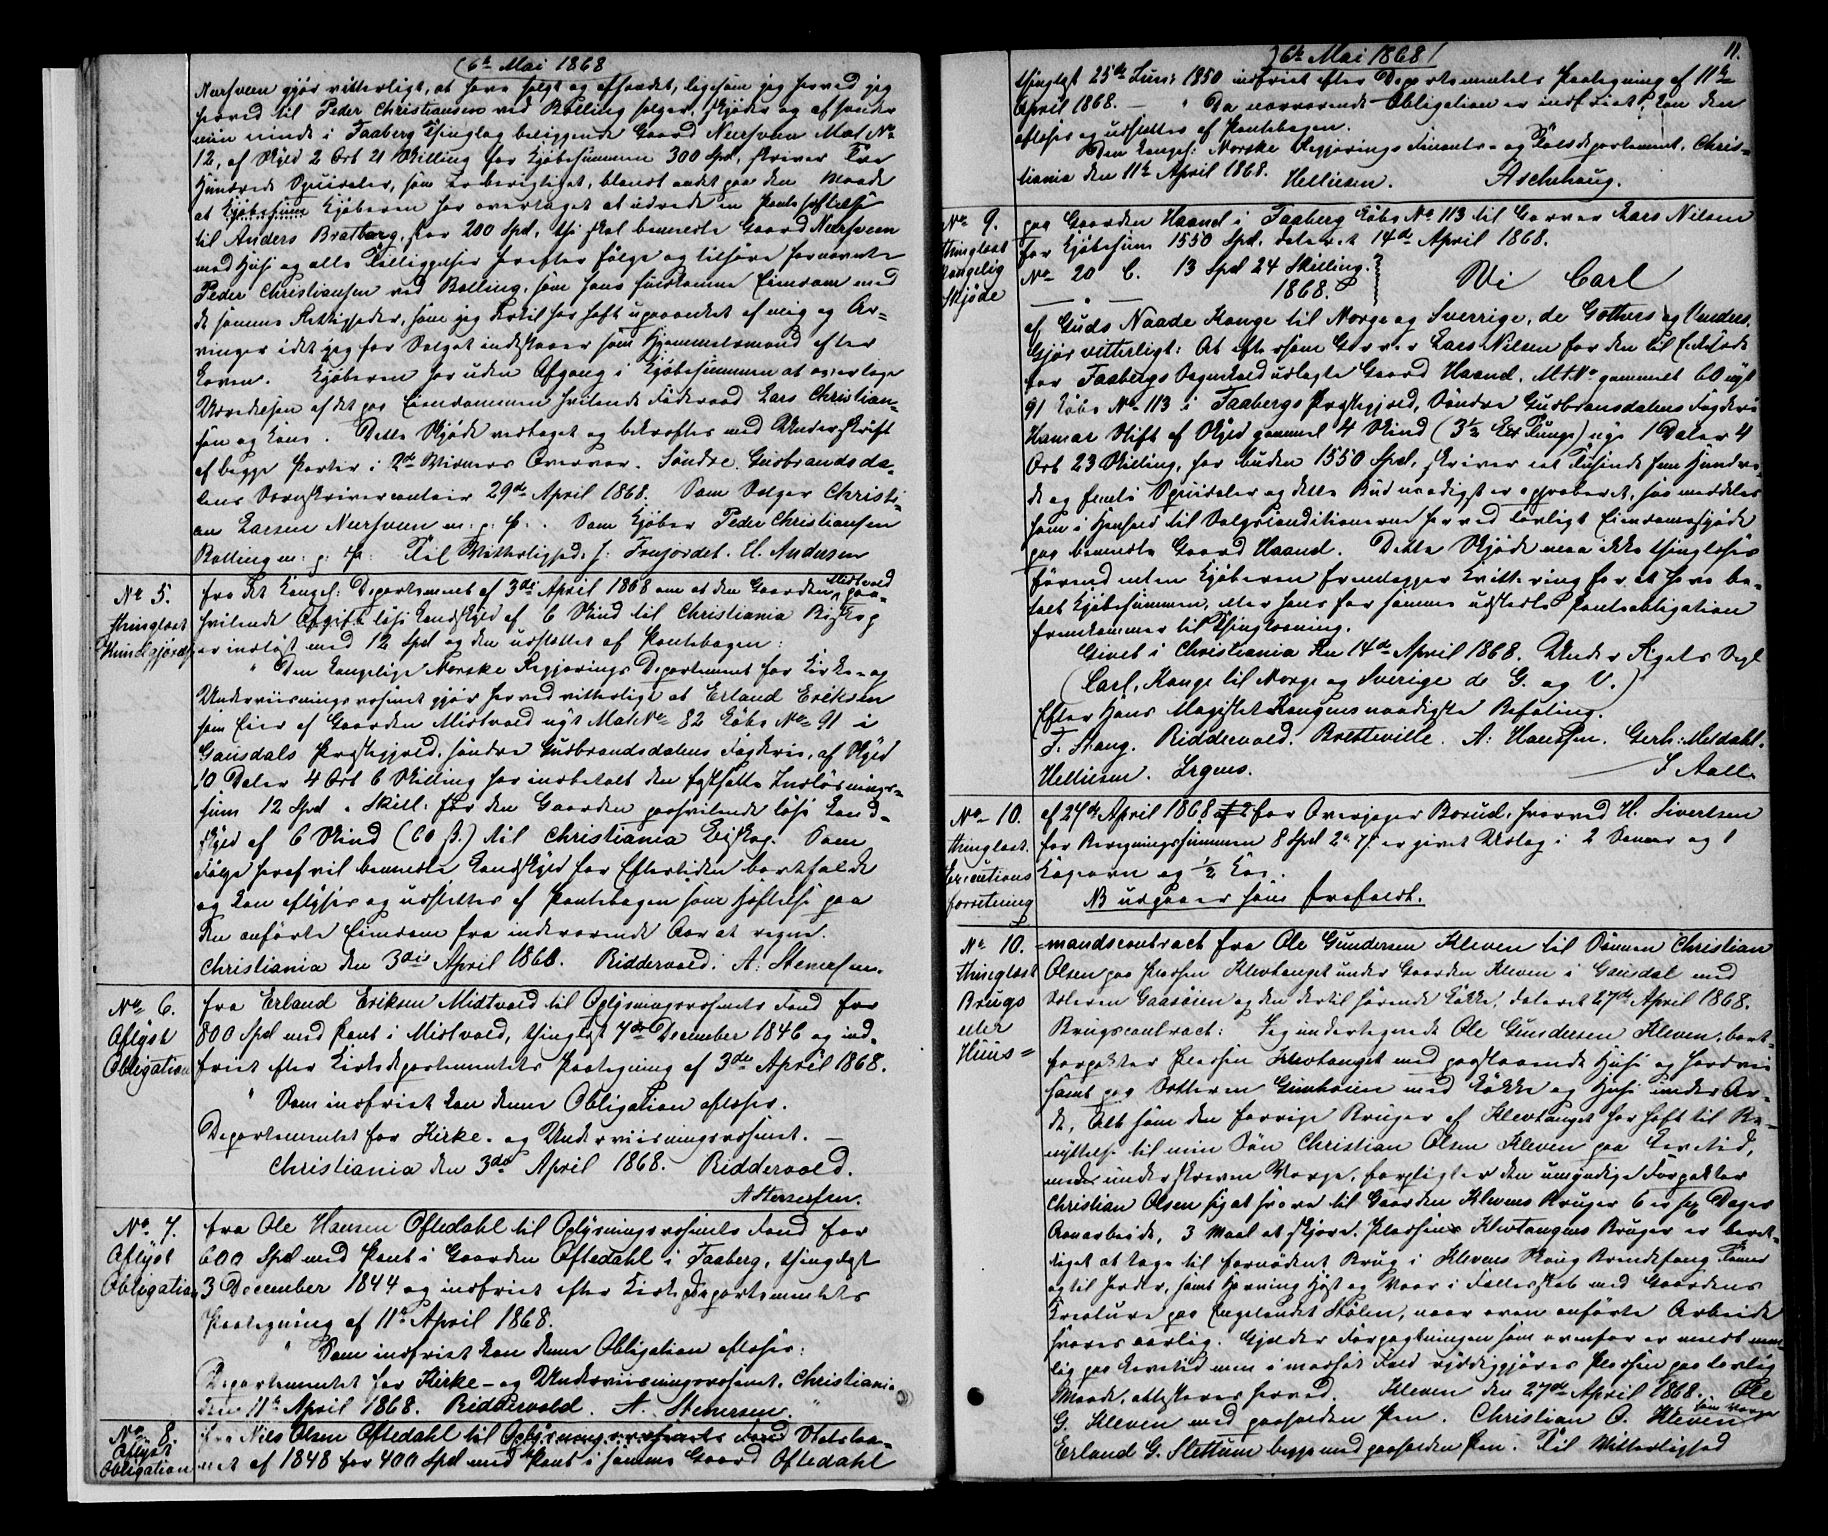 (6te Mai 1868
Nursveen gjør vitterligt, at have solgt og afhændet, ligesom jeg herved jeg
herved til Peder Christiansen ved Bølling sælger, skjøder og afhænder
min eiende i Faaberg Thinglag beliggende Gaard Nursveen Mat. No
12, af Skyld 2 Ort 21 Skilling for Kjøbesummen 300 Spd, skriver Tre
Hundrede Speciedaler, som er berigtiget, blandt andet paa den Maade
at Kjøbesum Kjøberen har overtaget at udrede en Panteheftelse
til Anders Bratberg, stor 200 Spd, thi skal bemeldte Gaard Nursveen
med Huse og alle Tilliggelser herefter følge og tilhøre fornævnte
Peder Christiansen ved Bølling, som hans Eiendom med
de samme Rettigheder, som jeg hertil har haft upaaanket af mig og Ar-
vinger idet jeg for Salget indestaaer som Hjemmelsmand efter
Loven. Kjøberen har uden Afgang i Kjøbesummen at overtage
Udredelsen af det paa Eiendommen hvilende Føderaad Lars Christian-
sen og Kone. Dette Skjøde vedtages og bekræftes med Underskrift
af begge Parter i 2de Vidners Overvær. Søndre Gudbrandsda-
lens Sorenskrivercontoir 29de April 1868. Som Sælger Christi-
an Larsen Nursveen m. p. P. Som Kjøber Peder Christiansen
Bølling m. p. P. Til Vitterlighed, J. Fougner. H. Andersen
No 5.
thinglæst
Kundgjørelse
fra det Kongel: Departement af 3die April 1868 om at den Gaarden Midtvold paa-
hvilende Afgift løse Landskyld af 6 Skind til Christiania Bispestol
er indløst med 12 Spd og den udslettet af Pantebogen:
" Den Kongelige Norske Regjerings Departement for Kirke- og
Underviisningsvæsenet gjør herved vitterligt at Erland Eriksen
som Eier af Gaarden Midtvold nyt Mat. No 82 Løbe No 91 i
Gausdals Præstegjeld, søndre Gudbrandsdalens Fogderi, af Skyld
10 Daler 4 Ort 6 Skilling har indbetalt den fastsatte Indløsnings-
sum 12 Spd " Skill: for den Gaarden paahvilende løse Land-
skyld af 6 Skind (60 ß.) til Christiania Bispestol. Som
Følge heraf vil bemeldte Landskyld for Eftertiden bortfalde
og kan aflyses og udslettes af Pantebogen som Heftelse paa
den anførte Eiendom fra indeværende Aar at regne.
Christiania den 3die April 1868. Riddervold. A: Stenersen.
No 6.
Aflyst
Obligation
fra Erland Eriksen Midtvold til Oplysningsvæsenets Fond for
800 Spd med Pant i Midtvold, thinglyst 7de December 1846 og ind-
friet efter Kirkedepartementets Paategning af 3die April 1868.
" Som indfriet kan denne Obligation aflæses.
Departementet for Kirke- og Underviisningsvæsenet. —
Christiania den 3die April 1868. Riddervold.
A Stenersen.
No 7.
Aflyst
Obligation
fra Ole Hansen Øftedahl til Oplysningsvæsenets Fond for
600 Spd med Pant i Gaarden Øftedahl i Faaberg, thinglyst
3 December 1844 og indfriet efter Kirkedepartementets
Paategning af 11te April 1868.
" Som indfriet kan denne Obligation aflæses:
Departementet for Kirke- og Underviisningsvæsenet. Christiania
den 11te April 1868. Riddervold. A. Stenersen. "
No 8.
Aflyst
Obligation
fra Nils Olsen Øftedahl til Oplysningsvæsenets Fond Statslaa-
net af 1848 for 400 Spd med Pant i samme Gaard Øftedahl
)6te Mai 1868(
11.
thinglyst 25de Juni 1850 indfriet efter Departementets Paategning af 11te
April 1868. — " Da nærværende Obligation er indfriet, kan den
aflæses og udslettes af Pantebogen.
Den kongel: Norske Regjerings Finants- og Tolddepartement, Chris-
tiania den 11te April 1868. Helliesen. Aschehoug.
No 9.
thinglæst
kongelig
Skjøde
paa Gaarden Haand i Faaberg Løbe No 113 til Garver Lars Nilsen
for Kjøbesum 1550 Spd, dateret 14de April 1868.
No 20 C. 13 Spd 24 Skilling.
— " — 1868. Vi Carl
af Guds Naade Konge til Norge og Sverrige, de Gothers og Venders,
Gjør vitterligt: At eftersom Garver Lars Nilsen for den til Enkesæde
for Faabergs Sognekald udlagte Gaard Haand, Mt. No gammelt 60 nyt
91 Løbe No 113 i Faabergs Præstegjeld, Søndre Gudbrandsdalens Fogderi
Hamar Stift af Skyld gammel 4 Skind (3½ Lpd Tunge) nye 1 Daler 4
Ort 23 Skilling, har buden 1550 Spd, skriver eet Tusinde fem Hundre-
de og femti Speciedaler og dette Bud naadigst er approberet, saa meddeles
ham i Henhold til Salgsconditionerne herved lovligt Eiendomsskjøde
paa bemeldte Gaard Haand. Dette Skjøde maa ikke thinglæses
førend enten Kjøberen fremlægger Kvittering for at have be-
talt Kjøbesummen, eller hans for samme udstedte Panteobligation
fremkommer til Thinglæsning.
Givet i Christiania den 14de April 1868. Under Rigets Segl
(Carl, Konge til Norge og Sverige de G. og V.)
Efter Hans Majestet Kongens naadigste Befaling.
F. Stang. Riddervold. Bretteville. A: Hansen. Gerh: Meldahl.
Helliesen. Irgens. J Aall.
No 10.
thinglæst.
Executions
forretning
af 24de April 1868 for Overjæger Borud, hvorved H. Sivertsen
for Beregningssummen 8 Spd 2 " 7 ß er givet Udlæg i 2 Senner og 1
Kaparn og ½ Kos.
NB udgaaer som frafaldt.
No 10.
thinglæst
Brugs
eller
Huus=
=mandscontract fra Ole Gundersen Kleven til Sønnen Christian
Olsen paa Pladsen Klevtanget under Gaarden Kleven i Gausdal med
Sæteren Gaasøien og den dertil hørende Løkke, dateret 27de April 1868.
Brugscontract: Jeg undertegnede Ole Gundersen Kleven, bort-
forpagter Pladsen Klevtanget med paastaaende Huse og Jordvei
samt paa Sætteren med Løkke og Huse under Ar-
de, Alt som den forrige Bruger af Klevtanget har haft til Be-
nyttelse til min Søn Christian Olsen Kleven paa Levetid,
medunderskreven Værge, forpligter den umyndige Forpagter
Christian Olsen sig at svare til Gaarden Klevens Bruger 6 er sex Dages
Aanarbeide, 3 Maal at skjære. Pladsen Klevtangens Bruger er beret-
tiget at tage til fornødent Brug i Klevens Skoug Brændefang Tømmer
og til Gjerder, samt Havning Høst og Vaar i Fællesskab med Gaardens
Creature paa Engelandet Stølen, naar oven anførte Arbeide
svares aarlig. Gjælder Forpagtningen som ovenfor er meldt nem-
lig paa Levetid men i modsat Fald ryddiggjøres Pladsen paa lovlig
Maade, attesteres herved. Kleven den 27de April 1868. Ole
G. Kleven med paaholden Pen. Christian O. Kleven som Værge
Erland G. Slettum begge med paaholden Pen. Til Vitterlighed